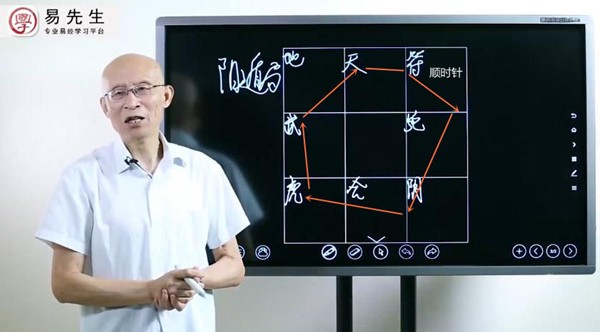 易先生
专业易经学习平台
阳遁局
地 天 符
顺时针
武 蛇
虎 合 阴